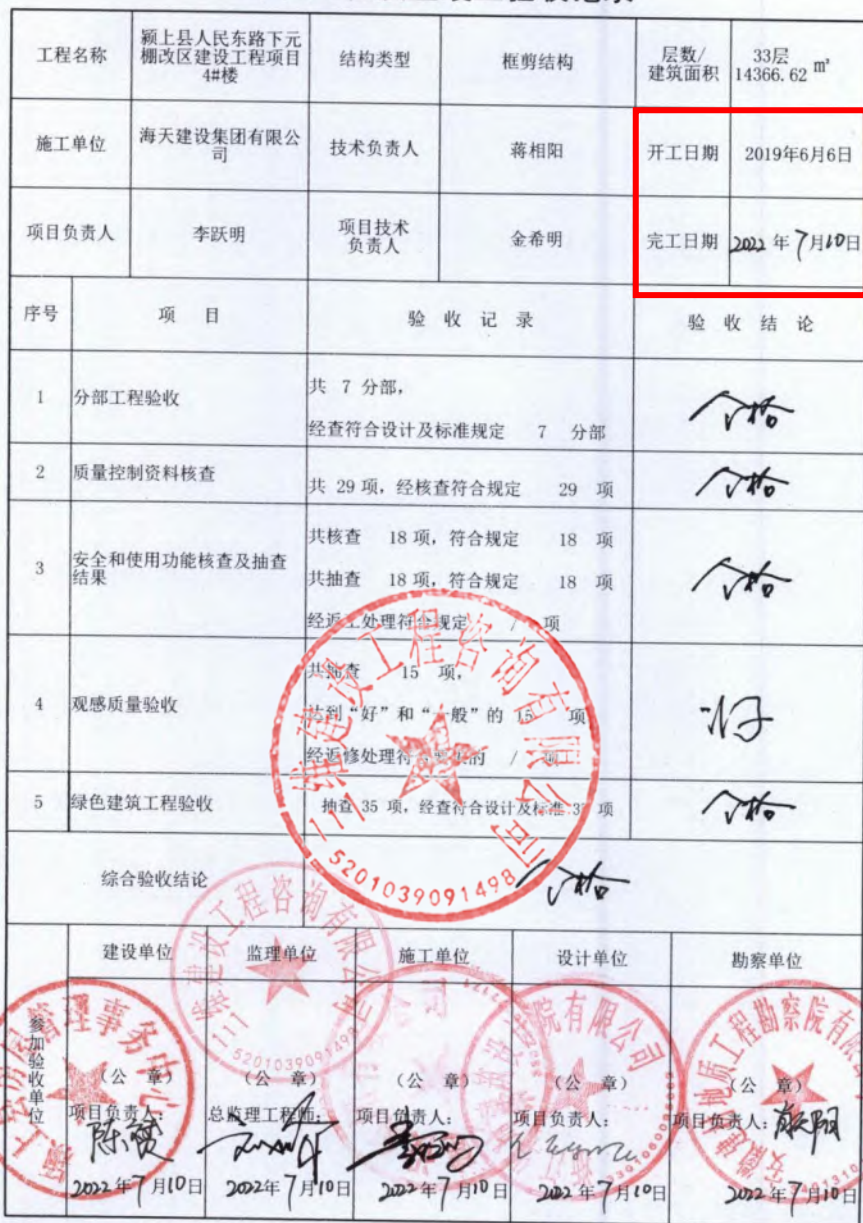 工程名称
颍上县人民东路下元
棚改区建设工程项目
4#楼
结构类型
框剪结构
层数/
建筑面积
33层
14366.62 m²
施工单位
海天建设集团有限公
司
技术负责人
蒋相阳
开工日期
2019年6月6日
项目负责人
李跃明
项目技术
负责人
金希明
完工日期
2022年7月10日
序号
项 目
验 收 记 录
验 收 结 论
1
分部工程验收
共 7 分部,
经查符合设计及标准规定 7 分部
合格
2
质量控制资料核查
共 29 项, 经核查符合规定 29 项
合格
3
安全和使用功能核查及抽查
结果
共核查 18 项, 符合规定 18 项
共抽查 18 项, 符合规定 18 项
经返工处理符合规定 / 项
合格
4
观感质量验收
共抽查 15 项,
达到“好”和“一般”的 15 项
经返修处理符合要求的 / 项
好
5
绿色建筑工程验收
抽查 35 项, 经查符合设计及标准 35 项
合格
三维建设工程咨询有限公司
5201039091498
综合验收结论
合格
参加验收单位
建设单位
监理单位
施工单位
设计单位
勘察单位
(公 章)
(公 章)
(公 章)
(公 章)
(公 章)
项目负责人:
总监理工程师:
项目负责人:
项目负责人:
项目负责人:
2022年7月10日
2022年7月10日
2022年7月10日
2022年7月10日
2022年7月10日